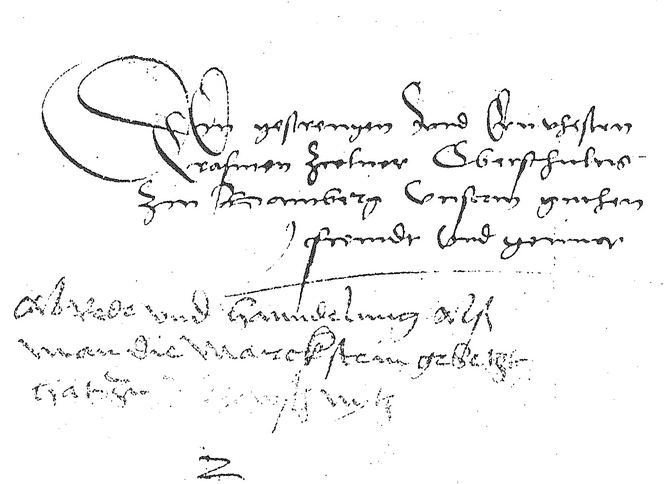 Dem gestrengen und Ernvhesten
Erasmen Zcolner Oberschulteis
Zu Bamberg Unserm guthen
freundt und gonner
Abrede und Hanndelung Alß
man die Marckstein gesetzt
Hat zu
2